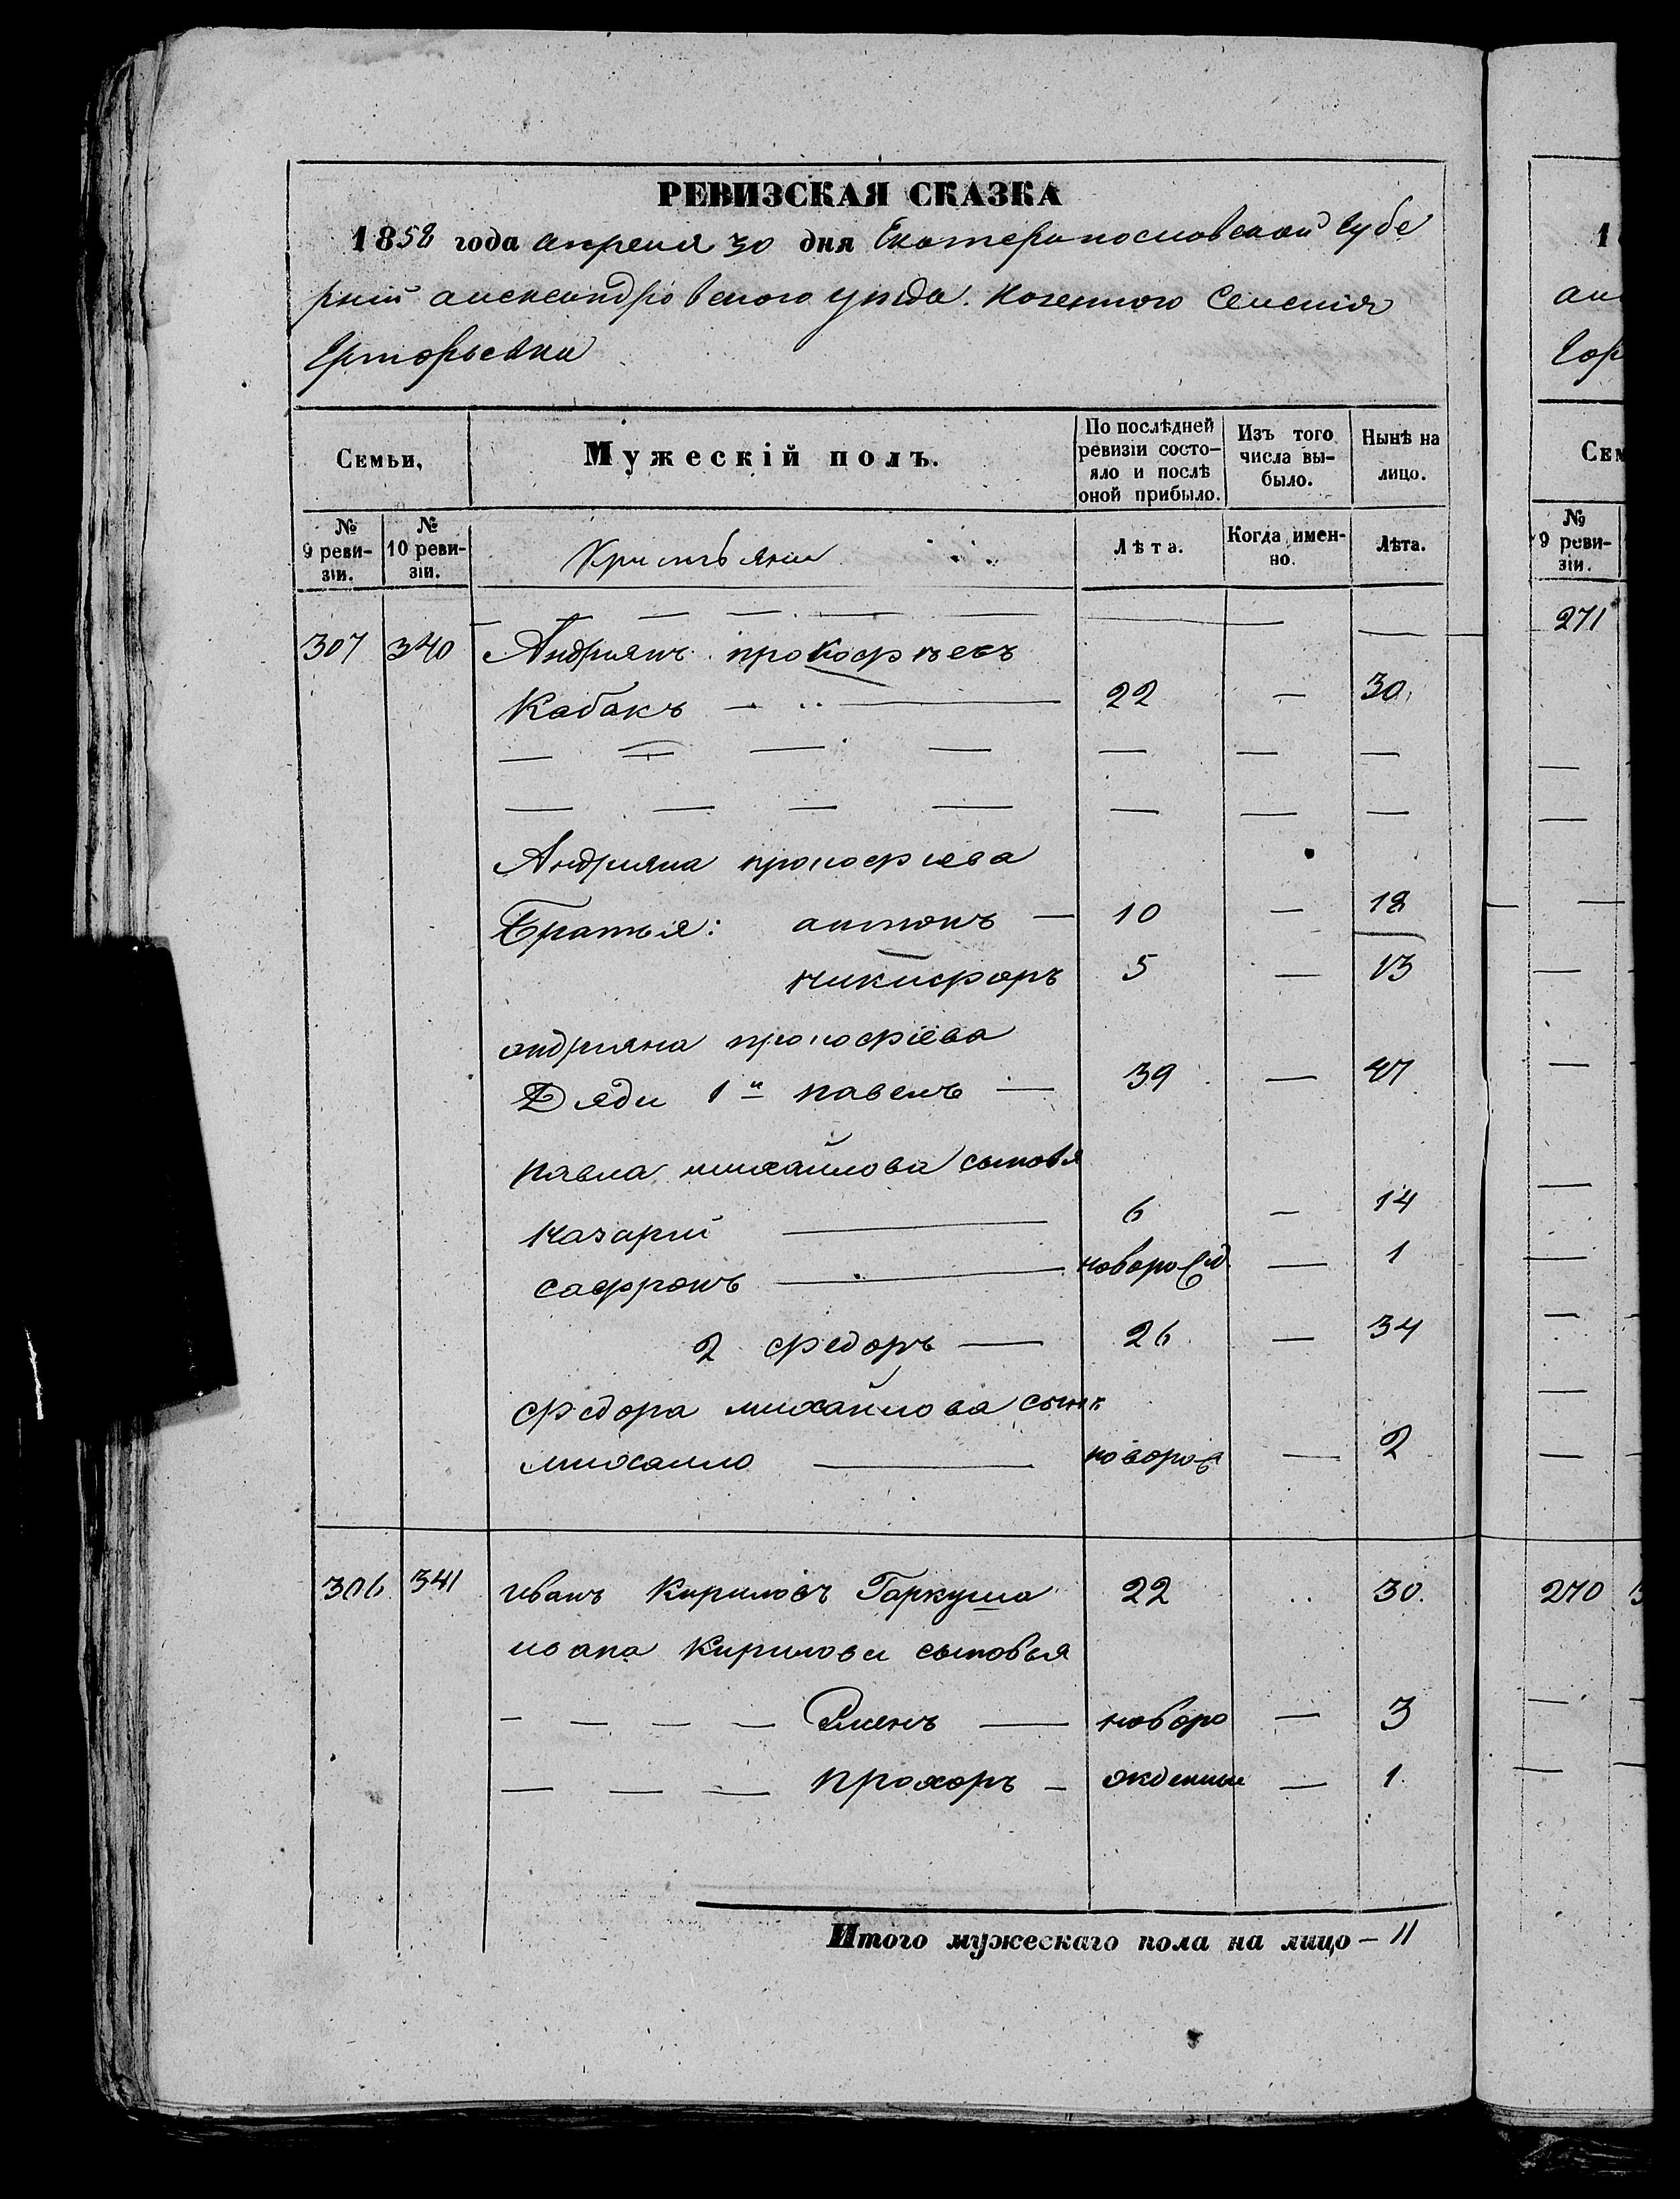 РЕВИЗСКАЯ СКАЗКА
1858 года апреля 30 дня Екатеринославской Губе
рніи александровского уезда. казенного Селенія
Семьи,
Мужескій полъ.
По послѣдней ревизіи состо-
яло и послѣ оной прибыло.
Изъ того числа вы-
было.
Нынѣ на лицо.
№ 9 реви-
зіи.
№ 10 реви-
зіи.
Лѣта.
Когда имен-
но.
Лѣта.
307 340 Андриянъ прокофьевъ
Кабакъ — 22 — 30
Андрияна прокофиева
Братья: антонъ — 10 — 18
никифоръ 5 — 13
андрияна прокофіева
Дяди 1й павелъ — 39 — 47
павла михайлова сыновья
назарий — 6 — 14
сафронъ — новорожд — 1
2 федоръ — 26 — 34
федора михайлова сынъ
михаило — новорож — 2
306 341 иванъ Кириловъ Гаркуша 22 30
ивана Кирилова сыновья
— — — — Семенъ — новоро — 3
— — — прохоръ — жденные — 1
Итого мужескаго пола на лицо — 11
№ 9 реви-
зіи.
271
270